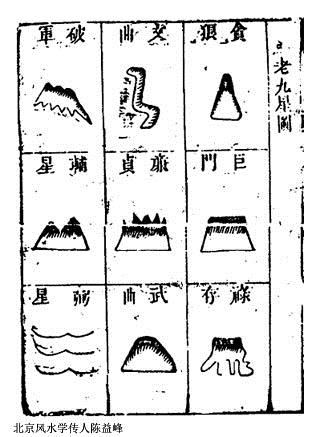 老九星圖
貪狼
巨門
祿存
文曲
廉貞
武曲
破軍
輔星
弼星
北京风水学传人陈益峰